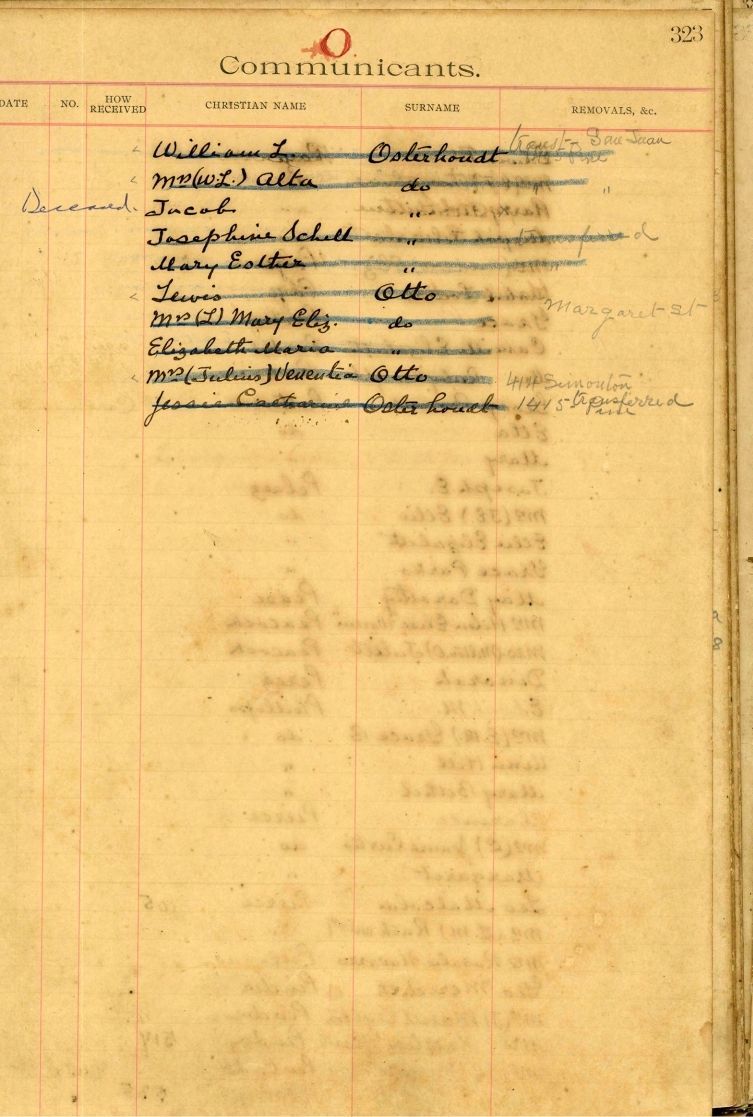 O
323
Communicants.
DATE NO. HOW RECEIVED CHRISTIAN NAME SURNAME REMOVALS, &c.
William L. Osterhoudt San Juan
Mrs (W.L.) Alta do " "
Deceased. Jacob "
Josephine Schell " transferred
Mary Esther "
Lewis Otto
Margaret St
Mrs (L) Mary Eliz. do
Elizabeth Maria "
Mrs (Julius) Otto 414 Simonton
Jessie Catharine Osterhoudt 1415 transferred